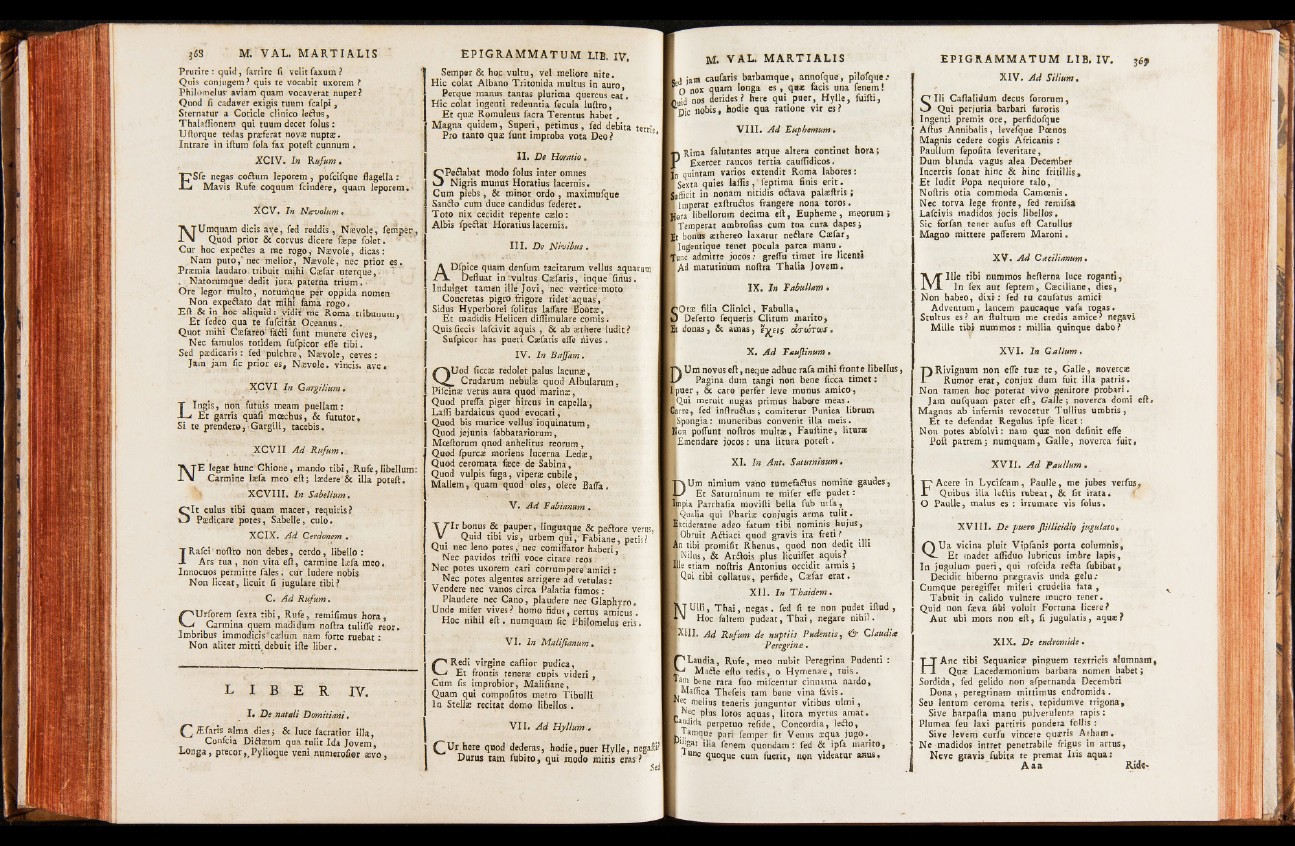 368 M. VAL. MARTIALIS
Prurire: quid, sarrire si velit saxum?
Quis conjugem? quis te vocabit uxorem?
Philomelus aviam quam vocaverat nuper?
Quod si cadaver exigis tuum scalpi,
Sternatur a Coricle clinico lectus,
Thalassionem qui tuum decet solus:
Ustorque tedas præferat novæ nuptæ.
Intrare in istum sola fax potest cunnum.
XCIV. In Rufum.
ESse negas coctum leporem, poscisque flagella:
Mavis Rufe coquum scindere, quam leporem.
XCV. In Nævolum.
NUmquam dicis ave, sed reddis, Nævole, semper,
Quod prior & corvus dicere sæpe solet.
Cur hoc expectes a me rogo, Nævole, dicas:
Nam puto, nec melior, Nævole, nec prior es.
Præmia laudato tribuit mihi Cæsar uterque,
Natorumque dedit jura paterna trium.
Ore legor multo, notumque per oppida nomen
Non expectato dat mihi fama rogo.
Est & in hoc aliquid: vidit me Roma tribunum,
Et sedeo qua te suscitat Oceanus.
Quot mihi Cæsareo facti sunt munere cives,
Nec famulos totidem suspicor esse tibi.
Sed pædicaris: sed pulchre, Nævole, ceves:
Jam jam sic prior es, Nævole. vincis. ave.
XCVI In Gargilium.
LIngis, non futuis meam puellam:
Et garris quasi mœchus, & fututor.
Si te prendero, Gargili, tacebis.
XCVII Ad Rufum.
NE legat hunc Chione, mando tibi, Rufe, libellum:
Carmine læsa meo est; lædere & illa potest.
XCVIII. In Sabellum.
SIt culus tibi quam macer, requiris?
Pædicare potes, Sabelle, culo.
XCIX. Ad Cerdonem.
IRasci nostro non debes, cerdo, libello:
Ars tua, non vita est, carmine læsa meo.
Innocuos permitte sales: cur ludere nobis
Non liceat, licuit si jugulare tibi?
C. Ad Rufum.
CUrsorem sexta tibi, Rufe, remisimus hora,
Carmina quem madidum nostra tulisse reor.
Imbribus immodicis cælum nam forte ruebat:
Non aliter mitti debuit iste liber.
LIBER IV.
I. De natali Domitiani.
CÆsaris alma dies; & luce sacratior illa,
Conscia Dictæum qua tulit Ida Jovem,
Longa, precor, Pylioque veni numerosior ævo,
EPIGRAMMATUM LIB. IV.
Semper & hoc vultu, vel meliore nite.
Hic colat Albano Tritonida multus in auro,
Perque manus tantas plurima quercus eat.
Hic colat ingenti redeuntia secula lustro,
Et quæ Romuleus sacra Terentus habet.
Magna quidem, Superi, petimus, sed debita terris,
Pro tanto quæ sunt improba vota Deo?
II. De Horatio.
SPectabat modo solus inter omnes
Nigris munus Horatius lacernis.
Cum plebs, & minor ordo, maximusque
Sancto cum duce candidus sederet.
Toto nix cecidit repente cælo:
Albis spectat Horatius lacernis.
III. De Nivibus.
ADspice quam densum tacitarum vellus aquarum
Defluat in vultus Cæsaris, inque sinus.
Indulget tamen ille Jovi, nec vertice moto
Concretas pigro frigore ridet aquas,
Sidus Hyperborei solitus lassare Bootæ,
Et madidis Helicen dissimulare comis.
Quis siccis lascivit aquis, & ab æthere ludit?
Suspicor has pueri Cæsaris esse nives.
IV. In Bassam.
QUod siccæ redolet palus lacunæ,
Crudarum nebulæ quod Albularum,
Piscinæ vetus aura quod marinæ,
Quod pressa piger hircus in capella,
Lassi bardaicus quod evocati,
Quod bis murice vellus inquinatum,
Quod jejunia sabbatariorum,
Mœstorum quod anhelitus reorum,
Quod spurcæ moriens lucerna Ledæ,
Quod ceromata fæce de Sabina,
Quod vulpis fuga, viperæ cubile,
Mallem, quam quod oles, olere Bassa.
V. Ad Fabianum.
VIr bonus & pauper, linguaque & pectore verus,
Quid tibi vis, urbem qui, Fabiane, petis?
Qui nec leno potes, nec comissator haberi,
Nec pavidos tristi voce citare reos:
Nec potes uxorem cari corrumpere amici:
Nec potes algentes arrigere ad vetulas:
Vendere nec vanos circa Palatia fumos:
Plaudere nec Cano, plaudere nec Glaphyro.
Unde miser vives? homo fidus, certus amicus.
Hoc nihil est. numquam sic Philomelus eris.
VI. In Malisianum.
CRedi virgine castior pudica,
Et frontis teneræ cupis videri,
Cum sis improbior, Malisiane,
Quam qui compositos metro Tibulli
In Stellæ recitat domo libellos.
VII. Ad Hyllum.
CUr here quod dederas, hodie, puer Hylle, negasti?
Durus tam subito, qui modo mitis eras?
Sed
M. VAL. MARTIALIS
Sed jam causaris barbamque, annosque, pilosque:
O nox quam longa es, quæ facis una senem!
Quid nos derides? here qui puer, Hylle, fuisti,
Dic nobis, hodie qua ratione vir es?
VIII. Ad Euphemum.
PRima salutantes atque altera continet hora;
Exercet raucos tertia caussidicos.
In quintam varios extendit Roma labores:
Sexta quies lassis, septima finis erit.
Sufficit in nonam nitidis octava palæstris;
Imperat exstructos frangere nona toros.
Hora libellorum decima est, Eupheme, meorum;
Temperat ambrosias cum tua cura dapes;
Et bonus æthereo laxatur nectare Cæsar,
Ingentique tenet pocula parca manu.
Tunc admitte jocos: gressu timet ire licenti
Ad matutinum nostra Thalia Jovem.
IX. In Fabullam.
SOtæ filia Clinici, Fabulla,
Deserto sequeris Clitum marito,
Et donas, & amas, ἔχεις ἀσώτως.
X. Ad Faustinum.
DUm novus est, neque adhuc rasa mihi fronte libellus,
Pagina dum tangi non bene sicca timet:
I puer, & caro perfer leve munus amico,
Qui meruit nugas primus habere meas.
Curre, sed instructus; comitetur Punica librum
Spongia: muneribus convenit illa meis.
Non possunt nostros multæ, Faustine, lituræ
Emendare jocos: una litura potest.
XI. In Ant. Saturninum.
DUm nimium vano tumefactus nomine gaudes,
Et Saturninum te miser esse pudet:
Impia Parrhasia movisti bella sub ursa,
Qualia qui Phariæ conjugis arma tulit.
Excideratne adeo fatum tibi nominis hujus,
Obruit Actiaci quod gravis ira freti?
An tibi promisit Rhenus, quod non dedit illi
Nilus, & Arctois plus licuisset aquis?
Ille etiam nostris Antonius occidit armis;
Qui tibi collatus, perfide, Cæsar erat.
XII. In Thaidem.
NUlli, Thai, negas. sed si te non pudet istud,
Hoc saltem pudeat, Thai, negare nihil.
XIII. Ad Rufum de nuptiis Pudentis, & Claudiæ
Peregrinæ.
CLaudia, Rufe, meo nubit Peregrina Pudenti:
Macte esto tedis, o Hymenæe, tuis.
Tam bene rara suo miscentur cinnama nardo,
Massica Theseis tam bene vina favis.
Nec melius teneris junguntur vitibus ulmi,
Nec plus lotos aquas, litora myrtus amat.
Candida perpetuo reside, Concordia, lecto,
Tamque pari semper sit Venus æqua jugo.
Diligat illa senem quondam: sed & ipsa marito,
Tunc quoque cum fuerit, non videatur anus.
EPIGRAMMATUM LIB. IV. 369
XIV. Ad Silium.
SIli Castalidum decus sororum,
Qui perjuria barbari furoris
Ingenti premis ore, perfidosque
Astus Annibalis, levesque Pœnos
Magnis cedere cogis Africanis:
Paullum seposita severitate,
Dum blanda vagus alea December
Incertis sonat hinc & hinc fritillis,
Et ludit Popa nequiore talo,
Nostris otia commoda Camœnis.
Nec torva lege fronte, sed remissa
Lascivis madidos jocis libellos.
Sic forsan tener ausus est Catullus
Magno mittere passerem Maroni.
XV. Ad Cæcilianum.
MIlle tibi nummos hesterna luce roganti,
In sex aut septem, Cæciliane, dies,
Non habeo, dixi: sed tu causatus amici
Adventum, lancem paucaque vasa rogas.
Stultus es? an stultum me credis amice? negavi
Mille tibi nummos: millia quinque dabo?
XVI. In Gallum.
PRivignum non esse tuæ te, Galle, novercæ
Rumor erat, conjux dum fuit illa patris.
Non tamen hoc poterat vivo genitore probari.
Jam nusquam pater est, Galle; noverca domi est.
Magnus ab infernis revocetur Tullius umbris,
Et te defendat Regulus ipse licet:
Non potes absolvi: nam quæ non definit esse
Post patrem; numquam, Galle, noverca fuit.
XVII. Ad Paullum.
FAcere in Lyciscam, Paulle, me jubes versus,
Quibus illa lectis rubeat, & sit irata.
O Paulle, malus es: irrumare vis solus.
XVIII. De puero stillicidio jugulato.
QUa vicina pluit Vipsanis porta columnis,
Et madet assiduo lubricus imbre lapis,
In jugulum pueri, qui roscida tecta subibat,
Decidit hiberno prægravis unda gelu:
Cumque peregisset miseri crudelia fata,
Tabuit in calido vulnere mucro tener.
Quid non sæva sibi voluit Fortuna licere?
Aut ubi mors non est, si jugulatis, aquæ?
XIX. De endromide.
HAnc tibi Sequanicæ pinguem textricis alumnam,
Quæ Lacedæmonium barbara nomen habet;
Sordida, sed gelido non aspernanda Decembri
Dona, peregrinam mittimus endromida.
Seu lentum ceroma teris, tepidumve trigona,
Sive harpasta manu pulverulenta rapis:
Plumea seu laxi partiris pondera follis:
Sive levem cursu vincere quæris Atham.
Ne madidos intret penetrabile frigus in artus,
Neve gravis subita te premat Iris aqua:
Aaa Ride-